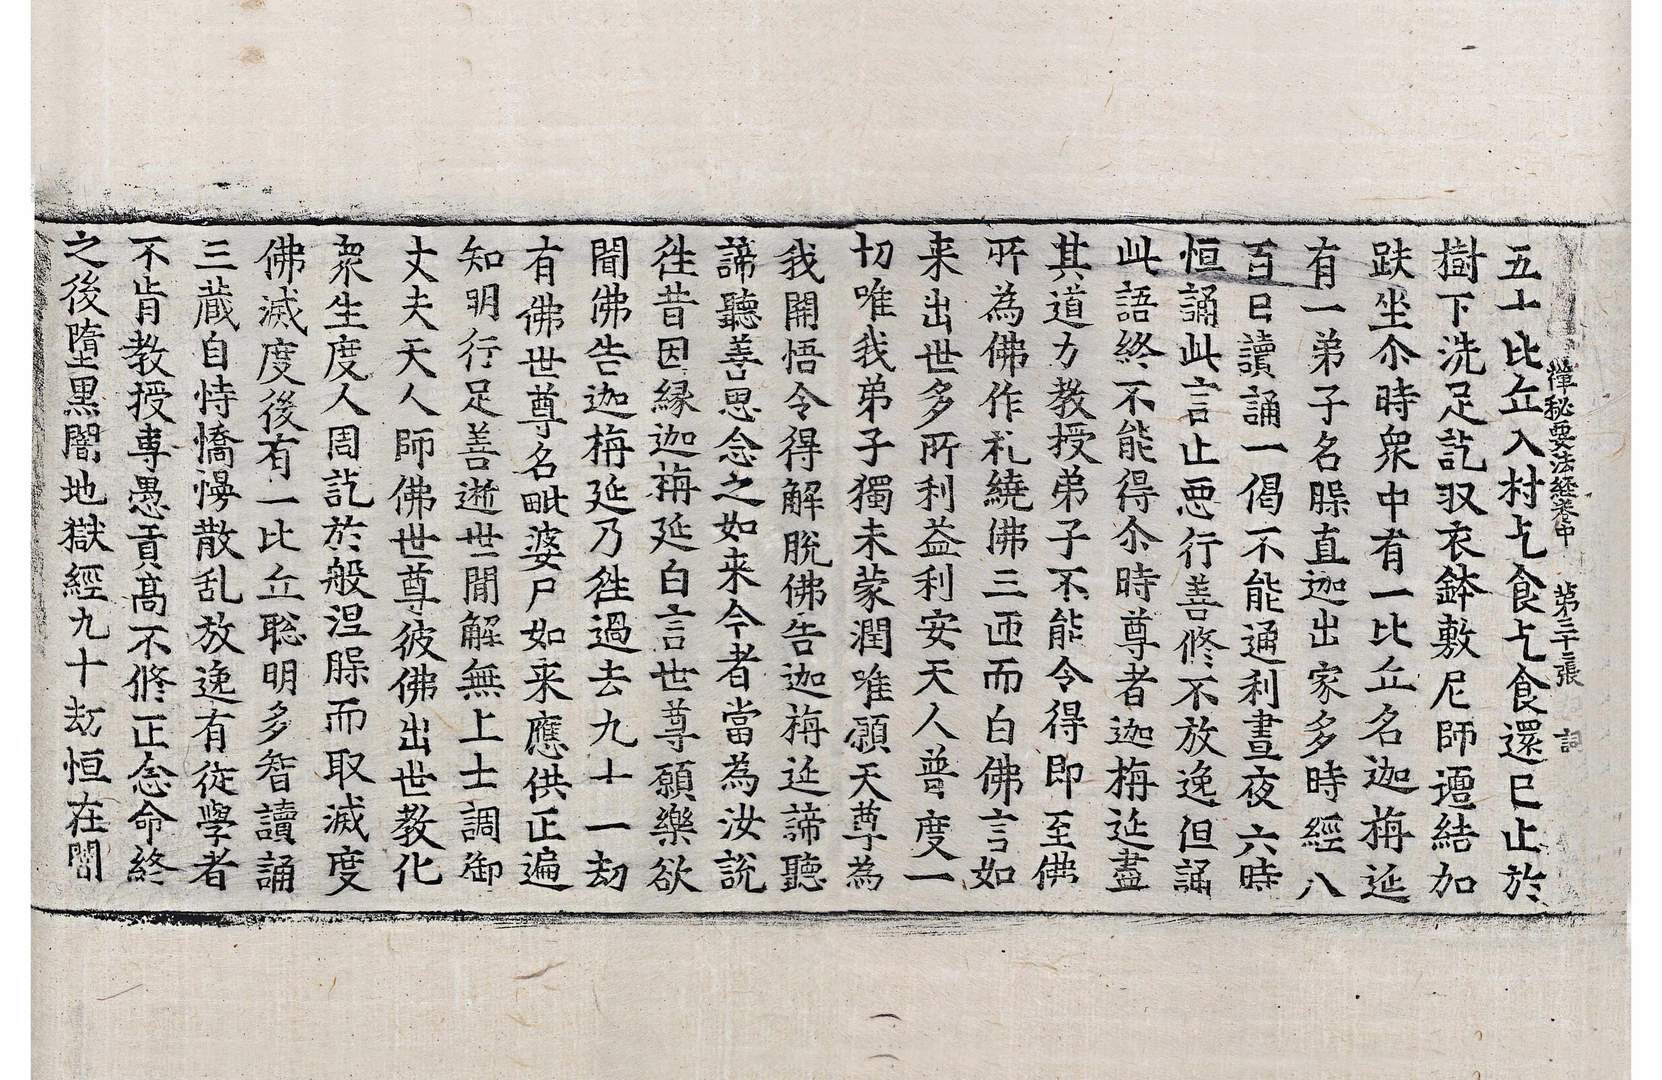 禪秘要法經卷中　第二十二張　詞
五十比丘入村乞食乞食還已止於
樹下洗足訖収衣鉢敷尼師壇結加
趺坐尒時衆中有一比丘名迦栴延
有一弟子名槃直迦出家多時經八
百日讀誦一偈不能通利晝夜六時
恒誦此言止惡行善修不放逸但誦
此語終不能得尒時尊者迦栴延盡
其道力教授弟子不能令得即至佛
所為佛作礼繞佛三迊而白佛言如
来出世多所利益利安天人普度一
切唯我弟子獨未蒙潤唯願天尊為
我開悟令得解脫佛告迦栴延諦聽
諦聽善思念之如来今者當為汝說
徃昔因縁迦栴延白言世尊願樂欲
聞佛告迦栴延乃徃過去九十一劫
有佛世尊名毗婆尸如来應供正遍
知明行足善逝世間解無上士調御
丈夫天人師佛世尊彼佛出世教化
衆生度人周訖於般涅槃而取滅度
佛滅度後有一比丘聡明多智讀誦
三藏自恃憍慢散乱放逸有從學者
不肯教授専愚貢髙不修正念命終
之後墮黒闇地獄經九十劫恒在闇